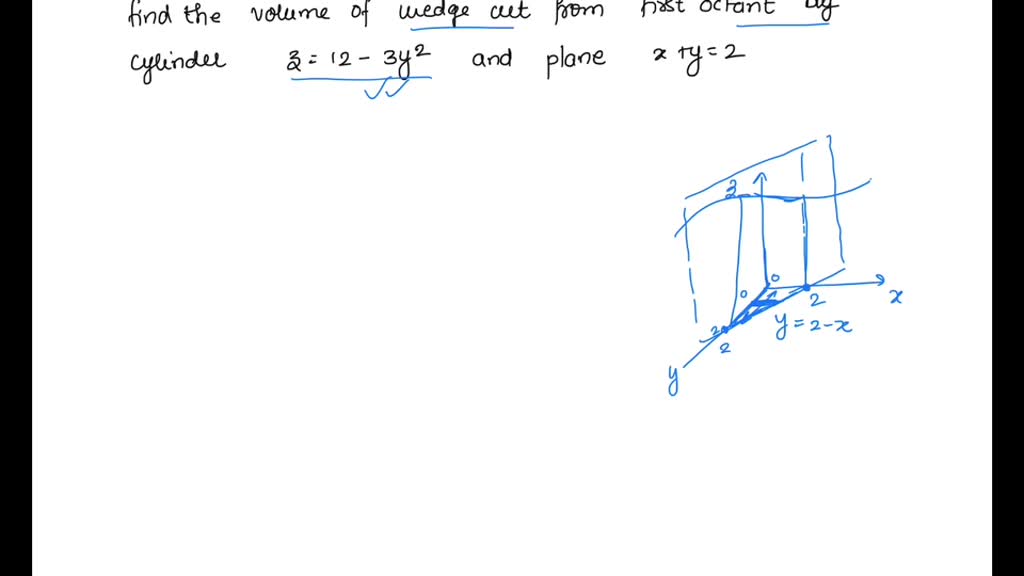 find the volume of wedge cut from first octant by
cylinder z = 12 - 3y² and plane x + y = 2
z
0
0
2
x
y = 2 - x
2
2
y